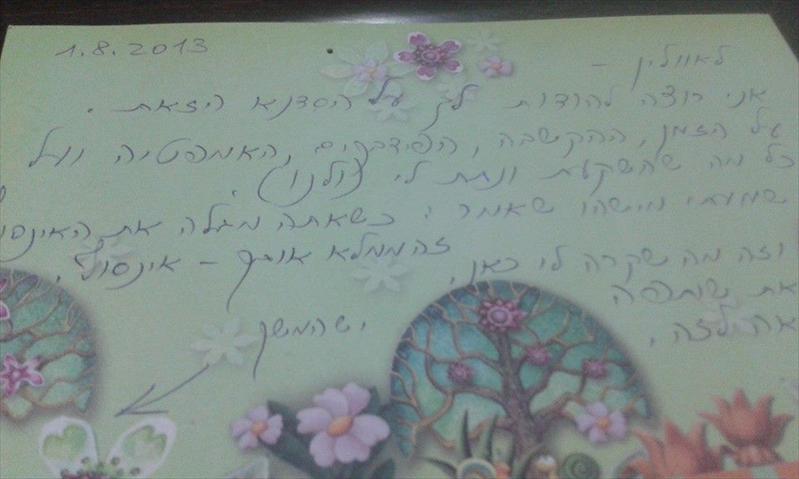 1.8.2013
לאוולין –
אני רוצה להודות לך על הסדנא הזאת.
על הזמן, ההקשבה, הפידבקים, האמפטיה ועל
כל מה שהשקעת ונתת לי (ולנו).
שמעתי מישהו שאמר: כשאתה מגלה את האינסו
זה ממלא אותך – אינסוף,
וזה מה שקרה לי כאן,
את שותפה
לזה,
יש המשך